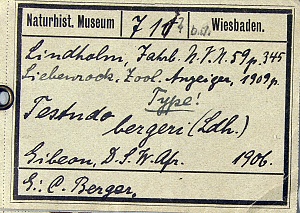 Naturhist. Museum 711 Wiesbaden.
Lindholm, Jahrb. N.V.N. 59 p. 345
Siebenrock, Zool. Anzeiger, 1909 p.
Type!
Testudo
bergeri (Ldh.)
Gibeon, D.S.W.Afr. 1906.
G.: C. Berger.